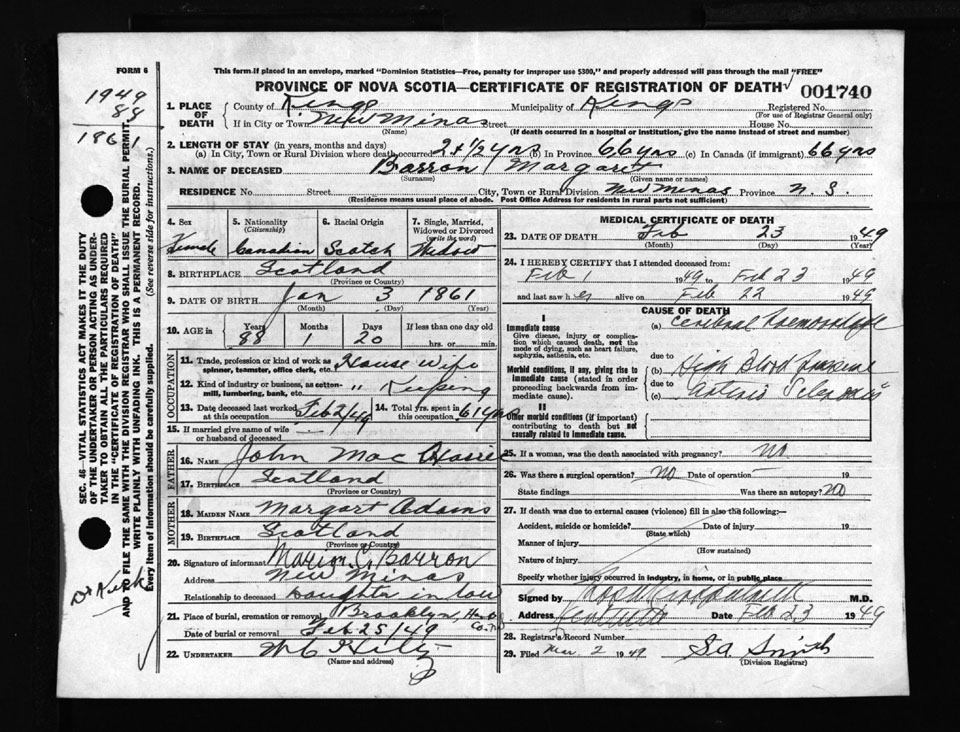 FORM 6
This form if placed in an envelope, marked "Dominion Statistics—Free, penalty for improper use $300," and properly addressed will pass through the mail "FREE"
PROVINCE OF NOVA SCOTIA—CERTIFICATE OF REGISTRATION OF DEATH 001740
1949
88
1861
1. PLACE OF DEATH County of Kings Municipality of Kings Registered No.
(For use of Registrar General only)
If in City or Town New Minas Street House No.
(Name) (If death occurred in a hospital or institution, give the name instead of street and number)
2. LENGTH OF STAY (in years, months and days)
(a) In City, Town or Rural Division where death occurred 2 + 1/2 yrs (b) In Province 66 yrs (c) In Canada (if immigrant) 66 yrs
3. NAME OF DECEASED Barron Margaret
(Surname) (Given name or names)
RESIDENCE No. Street City, Town or Rural Division New Minas Province N. S.
(Residence means usual place of abode. Post Office Address for residents in rural parts not sufficient)
4. Sex 5. Nationality (Citizenship) 6. Racial Origin 7. Single, Married, Widowed or Divorced (write the word)
Female Canadian Scotch Widow
8. BIRTHPLACE Scotland
(Province or Country)
9. DATE OF BIRTH Jan 3 1861
(Month) (Day) (Year)
10. AGE in Years Months Days If less than one day old
88 1 20 hrs. or min.
OCCUPATION
11. Trade, profession or kind of work as spinner, teamster, office clerk, etc. House Wife
12. Kind of industry or business, as cotton-mill, lumbering, bank, etc. " Keeping
13. Date deceased last worked at this occupation Feb 2/49 14. Total yrs. spent in this occupation 61 yrs
15. If married give name of wife or husband of deceased
FATHER
16. NAME John Mac
17. BIRTHPLACE Scotland
(Province or Country)
MOTHER
18. MAIDEN NAME Margart Adams
19. BIRTHPLACE Scotland
(Province or Country)
20. Signature of informant Marion C. Barron
Address New Minas
Relationship to deceased Daughter in law
21. Place of burial, cremation or removal Brooklyn, Hants Co.
Date of burial or removal Feb 25/49
22. UNDERTAKER W C Hiltz
(Name and address)
MEDICAL CERTIFICATE OF DEATH
23. DATE OF DEATH Feb 23 1949
(Month) (Day) (Year)
24. I HEREBY CERTIFY that I attended deceased from:
Feb 1 1949 to Feb 23 1949
and last saw her alive on Feb 22 1949
CAUSE OF DEATH
I
Immediate cause
Give disease, injury or complication which caused death, not the mode of dying, such as heart failure, asphyxia, asthenia, etc.
(a) Cerebral Haemorrhage
due to
Morbid conditions, if any, giving rise to immediate cause (stated in order proceeding backwards from immediate cause).
(b) High Blood Pressure
due to
(c) Arterio Sclerosis
II
Other morbid conditions (if important) contributing to death but not causally related to immediate cause.
25. If a woman, was the death associated with pregnancy? No
26. Was there a surgical operation? No Date of operation 19
State findings Was there an autopsy? no
27. If death was due to external causes (violence) fill in also the following:—
Accident, suicide or homicide? Date of injury 19
(State which)
Manner of injury
(How sustained)
Nature of injury
Specify whether injury occurred in industry, in home, or in public place
Signed by M.D.
Address Kentville Date Feb 23 1949
28. Registrar's Record Number
29. Filed Mar. 2 1949 S.A. Smith
(Division Registrar)
SEC. 46—VITAL STATISTICS ACT MAKES IT THE DUTY
OF THE UNDERTAKER OR PERSON ACTING AS UNDER-
TAKER TO OBTAIN ALL THE PARTICULARS REQUIRED
IN THE "CERTIFICATE OF REGISTRATION OF DEATH"
AND TO FILE THE SAME WITH THE DIVISION REGISTRAR WHO SHALL ISSUE THE BURIAL PERMIT.
WRITE PLAINLY WITH UNFADING INK. THIS IS A PERMANENT RECORD.
Every item of Information should be carefully supplied. (See reverse side for instructions.)